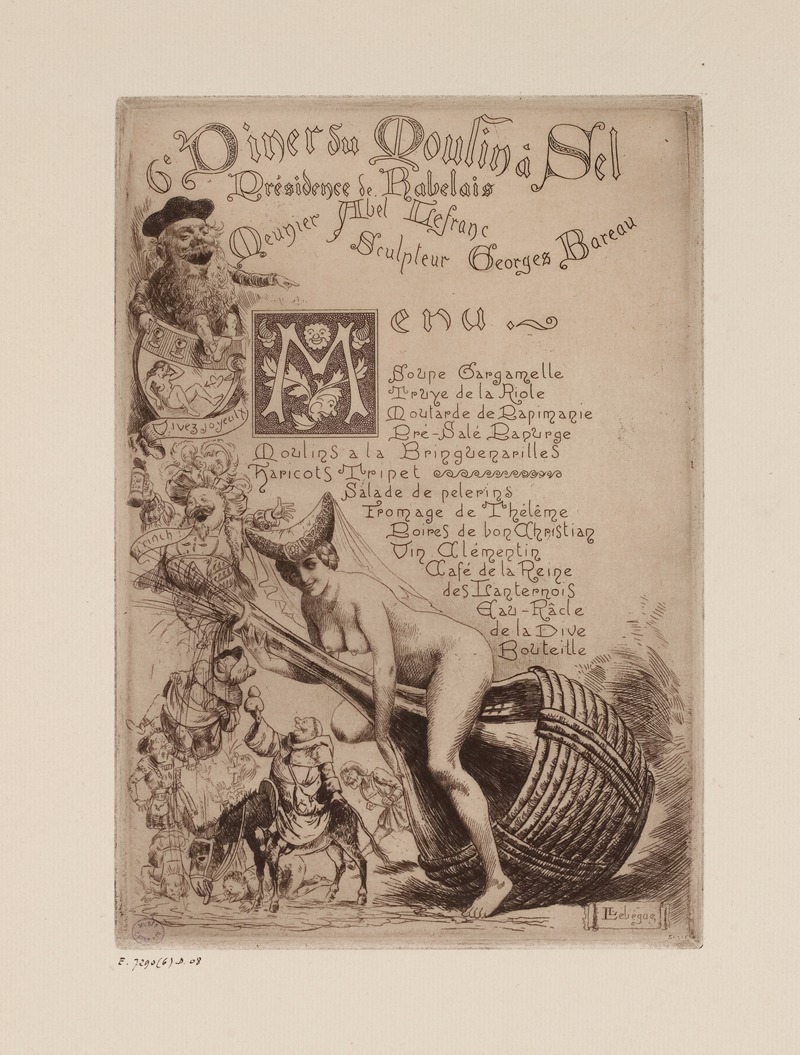 6e Diner du Moulin à Sel
Présidence de Rabelais
Meunier Abel Lefranc
Sculpteur Georges Bareau
Menu
Soupe Gargamelle
Truye de la Riole
Moutarde de Papimanie
Pré-Salé Panurge
Moulins a la Bringuenarilles
Haricots Tripet
Salade de pelerins
Fromage de Thélême
Poires de bon Christian
Vin Clémentin
Café de la Reine
des Lanternois
Eau-Râcle
de la Dive
Bouteille
Vivez Joyeulx
Trinch
Lebègue
E. 7290(6) D. 08